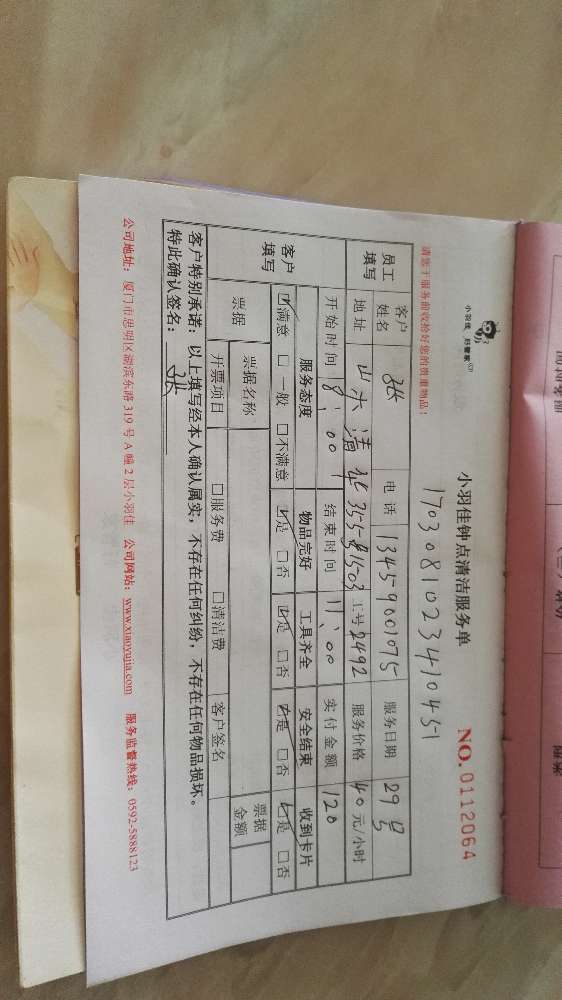 小羽佳 好管家
小羽佳钟点清洁服务单
NO.0112064
1703081023410451
请您于服务前收捡好您的贵重物品！
员工填写
客户姓名 张 电话 13459001075 服务日期 29号
地址 山水清 35-5-1503 工号 2492 服务价格 40元/小时
开始时间 8:00 结束时间 11:00 实付金额 120
客户填写
服务态度 物品完好 工具齐全 安全结束 收到卡片
☑满意 □一般 □不满意 ☑是 □否 ☑是 □否 ☑是 □否 ☑是 □否
票据 票据名称 票据金额
开票项目 □服务费 □清洁费 客户签名
客户特别承诺：以上填写经本人确认属实，不存在任何纠纷，不存在任何物品损坏。
特此确认签名： 张
公司地址：厦门市思明区湖滨东路319号A幢2层小羽佳 公司网站：www.xiaoyujia.com 服务监督热线：0592-5888123